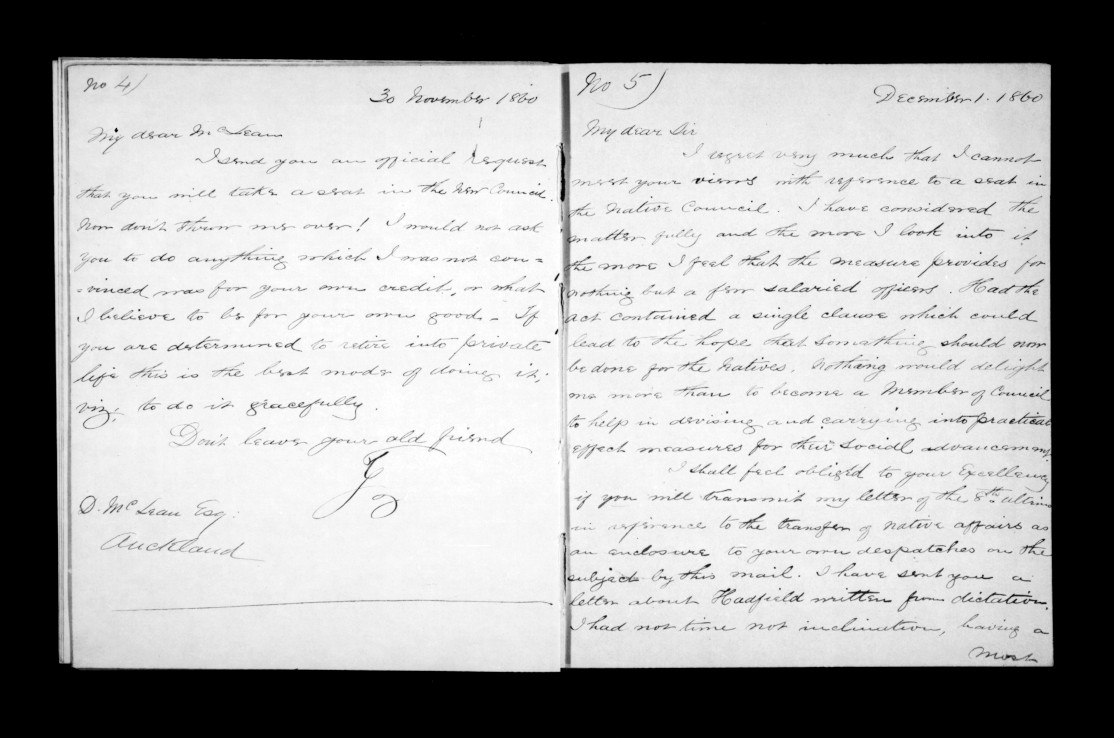 No 4)
30 November 1860
My dear McLean
I send you an official request
that you will take a seat in the New Council.
Now don't throw me over! I would not ask
you to do anything which I was not con=
=vinced was for your own credit, or what
I believe to be for your own good - If
you are determined to retire into private
life this is the best mode of doing it;
viz. to do it gracefully.
Don't leave your old friend
D. McLean Esq.
Auckland
No 5)
December 1. 1860
My dear Sir
I regret very much that I cannot
meet your views with reference to a seat in
the Native Council. I have considered the
matter fully and the more I look into it
the more I feel that the measure provides for
nothing but a few salaried officers. Had the
Act contained a single clause which could
lead to the hope that something should now
be done for the Natives. Nothing would delight
me more than to become a Member of Council
to help in devising and carrying into practical
effect measures for their social advancement.
I shall feel obliged to your Excellency
if you will transmit my letter of the 8th ultimo
in reference to the transfer of native affairs as
an enclosure to your own despatches on the
subject by this mail. I have sent you a
letter about Hadfield written from dictation.
I had not time not inclination, having a
most